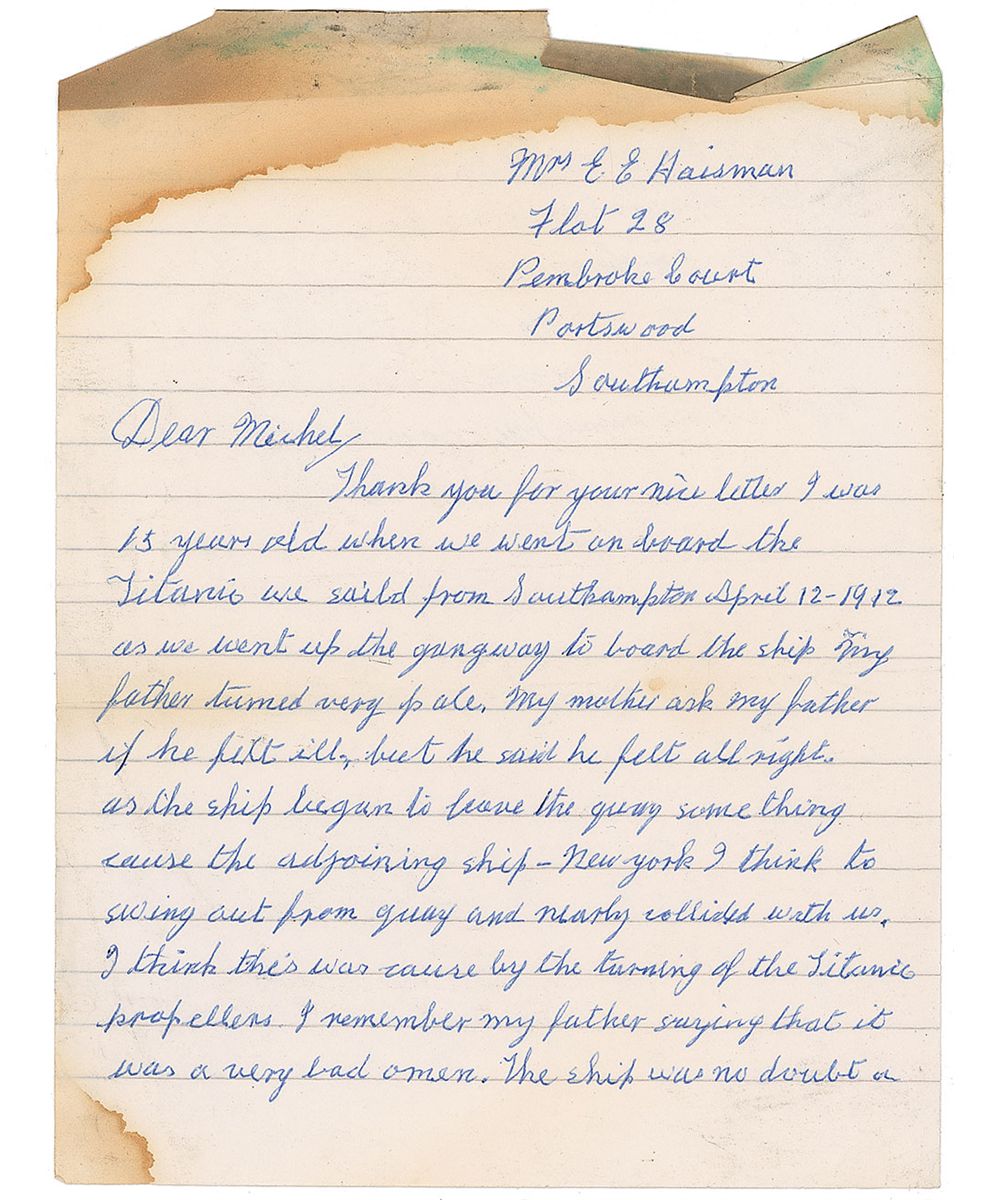 Mrs E E Haisman
Flat 28
Pembroke Court
Portswood
Southampton
Dear Michel,
Thank you for your nice letter I was
15 years old when we went on board the
Titanic we saild from Southampton April 12-1912
as we went up the gangway to board the ship My
father turned very pale. My mother ask my father
if he felt ill, but he said he felt all right.
as the ship began to leave the quay some thing
cause the adjoining ship - New york I think to
swing out from quay and nearly collided with us.
I think this was cause by the turning of the Titanic
propellers. I remember my father saying that it
was a very bad omen. The ship was no doubt a